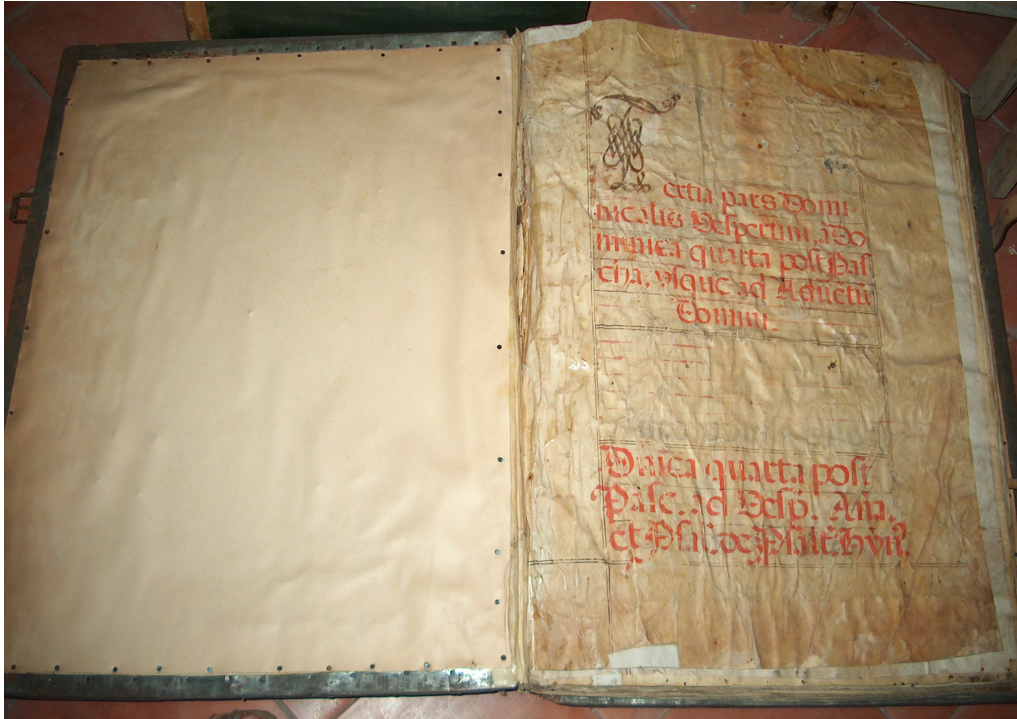 Tertia pars Domi
nicalis Vespertini, a Do
minica quarta post Pas
cha, vsque ad Aduētū
Domini.
Dn̄ica quarta post
Pasc. ad Vesp. Aña.
et Psal. de Psalt. Hyn̄.